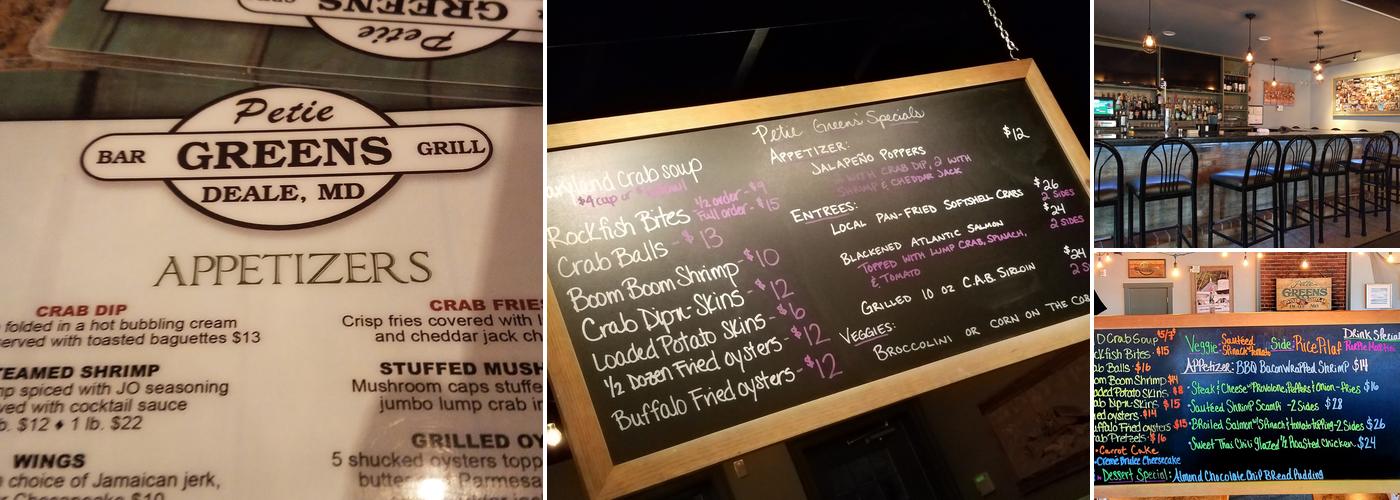 Petie
GREENS
Petie
BAR GREENS GRILL
DEALE, MD
APPETIZERS
CRAB DIP
folded in a hot bubbling cream
served with toasted baguettes $13
STEAMED SHRIMP
spiced with JO seasoning
with cocktail sauce
$12 ♦ 1 lb. $22
WINGS
choice of Jamaican jerk,
$10
CRAB FRIES
Crisp fries covered with
and cheddar jack
STUFFED MUSH
Mushroom caps stuffe
jumbo lump crab
GRILLED OY
5 shucked oysters topp
Maryland Crab soup
$4 cup or
Rockfish Bites ½ order - $9
Full order - $15
Crab Balls - $13
Boom Boom Shrimp - $10
Crab Dip-n-Skins - $12
Loaded Potato Skins - $6
½ Dozen Fried oysters - $12
Buffalo Fried oysters - $12
Petie Greens' Specials
APPETIZER:
JALAPEÑO POPPERS $12
WITH CRAB DIP, 2 WITH
SHRIMP & CHEDDAR JACK
ENTREES:
LOCAL PAN-FRIED SOFTSHELL CRABS $26
2 SIDES
BLACKENED ATLANTIC SALMON $24
TOPPED WITH LUMP CRAB, SPINACH, 2 SIDES
& TOMATO
GRILLED 10 OZ C.A.B. SIRLOIN $24
2 S
VEGGIES:
BROCCOLINI OR CORN ON THE COB
Petie
GREENS
D Crab Soup $5/7
ckfish Bites - $15
ab Balls - $16
om Boom Shrimp $14
oaded Potato Skins $8
ab Dip-n-Skins $15
ied oysters - $14
uffalo Fried oysters $15
rab Pretzels - $16
Carrot Cake
Creme Brulee Cheesecake
Dessert Special: Almond Chocolate Chip Bread Pudding
Veggie: Sautéed Spinach & tomato Side: Rice Pilaf
Drink Special
Appetizer: BBQ Bacon Wrapped Shrimp $14
Steak & Cheese w/ Provolone, Peppers & Onion - Fries $16
Sautéed Shrimp Scampi - 2 Sides $28
Broiled Salmon w/ Spinach & tomato topping - 2 Sides $26
Sweet Thai Chili Glazed ½ Roasted Chicken $24